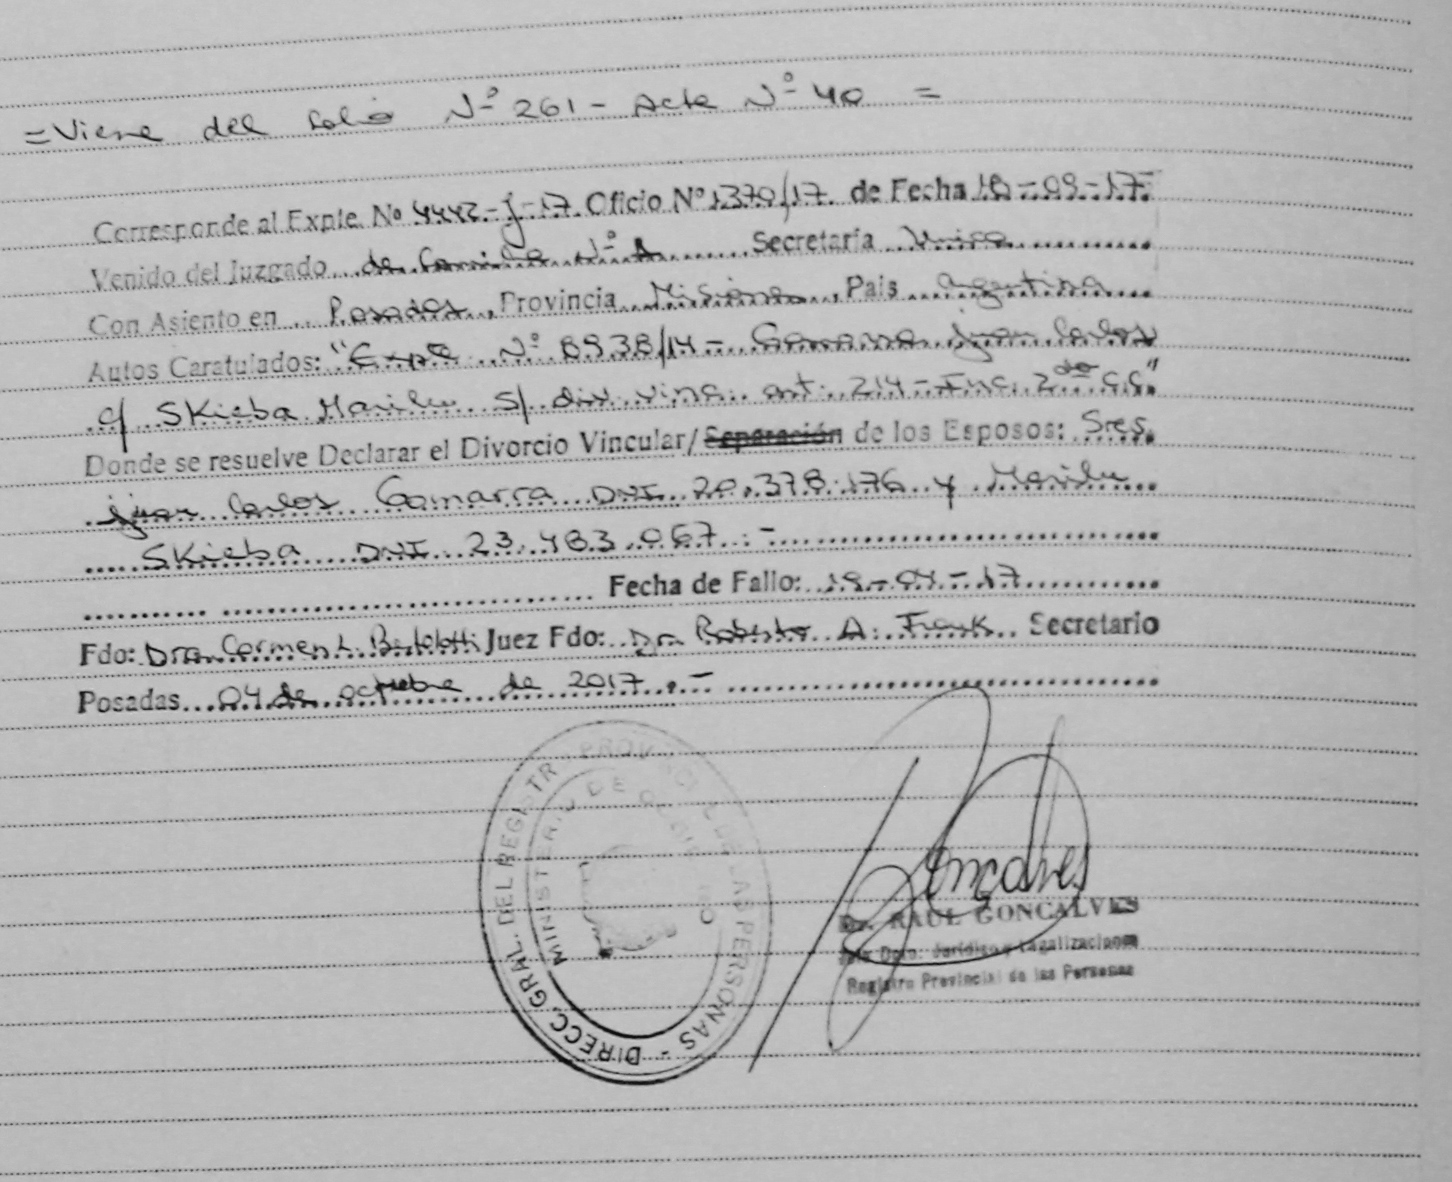 =Viene del folio Nº 261 - Acta Nº 40 =
Corresponde al Expte. Nº 4442-J-17 Oficio Nº 1370/17 de Fecha -09-17-
Venido del Juzgado de Familia Nº Secretaría Unica
Con Asiento en Posadas, Provincia Misiones, País Argentina
Autos Caratulados: "Expte Nº 8938/14 - Gamarra Juan Carlos
c/ Skieba Marilu s/ div. vinc. art. 214 - Inc. 2do C.C"
Donde se resuelve Declarar el Divorcio Vincular/Separación de los Esposos: Sres.
Juan Carlos Gamarra DNI 20.378.176 y Marilu
Skieba DNI 23.483.067.-
Fecha de Fallo: -04-17
Fdo: Dra. Carmen L. Juez Fdo: Dr. Roberto A. Frank Secretario
Posadas 04 de octubre de 2017.-
DIRECC. GRAL. DEL REGISTRO PROVINCIAL DE LAS PERSONAS -
MINISTERIO DE GOBIERNO
Goncalves
Dr. RAUL GONCALVES
Jefe Dpto. Jurídico y Legalizaciones
Registro Provincial de las Personas